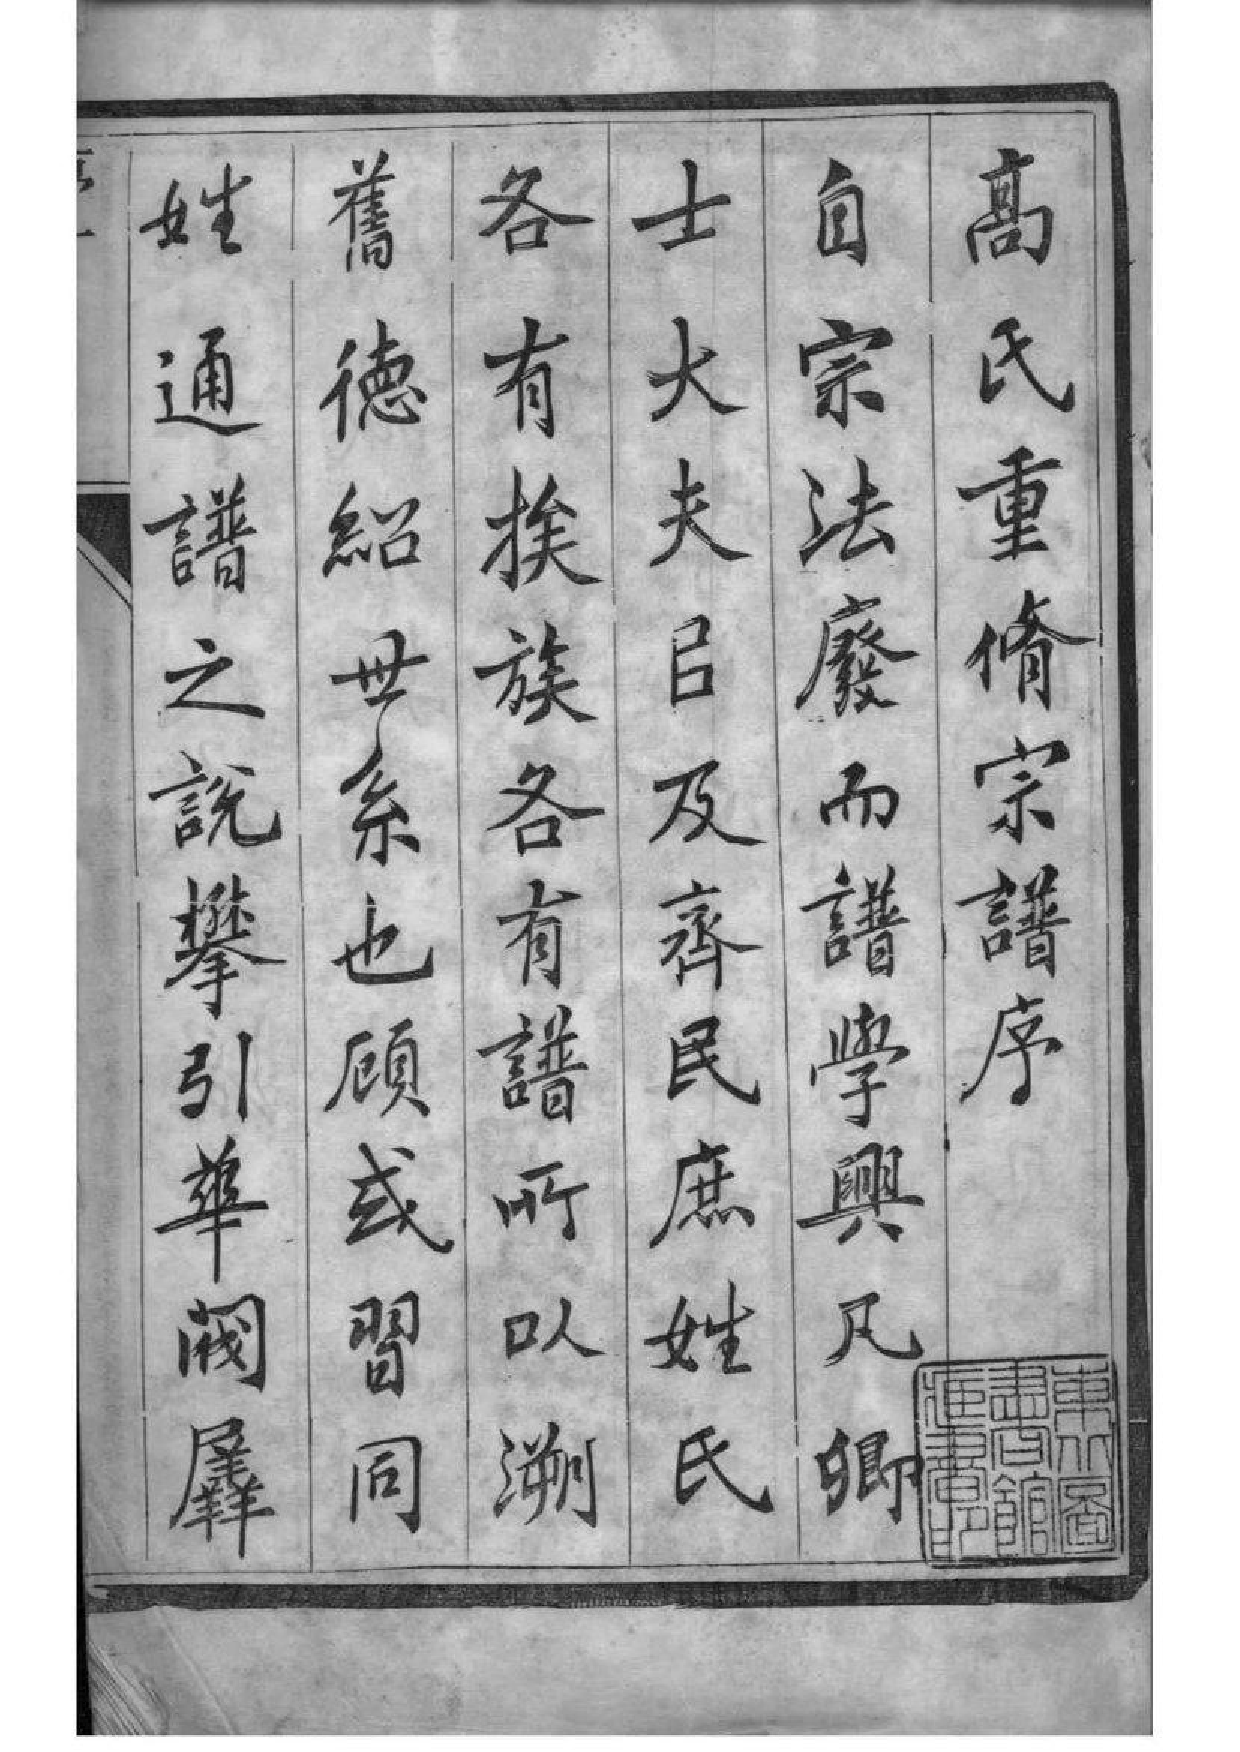 高氏重脩宗譜序
自宗法廢而譜學興凡卿
士大夫㠯及齊民庶姓氏
各有挨族各有譜所以溯
舊德紹世系也顧或習同
姓通譜之說攀引華閥羼
東北圖
書館